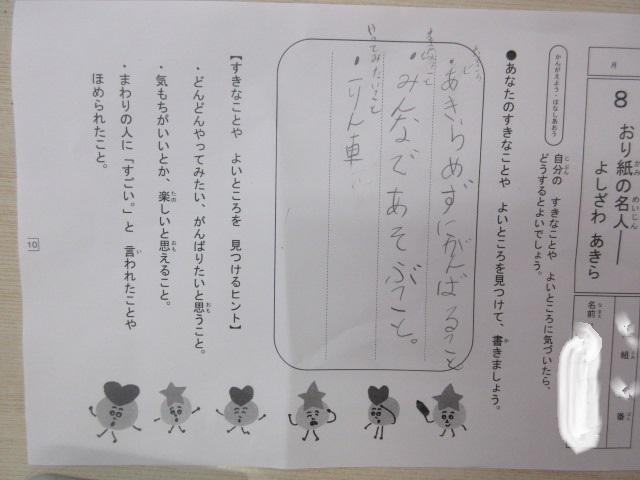 月
8 おり紙の名人――
よしざわ あきら
名前 組 番
かんがえよう・はなしあおう
自分の すきなことや よいところに気づいたら、
どうするとよいでしょう。
●あなたのすきなことや よいところを見つけて、書きましょう。
・あきらめずにがんばること
・みんなであそぶこと。
やってみたいこと
・一りん車
【すきなことや よいところを 見つけるヒント】
・どんどんやってみたい、がんばりたいと思うこと。
・気もちがいいとか、楽しいと思えること。
・まわりの人に「すごい。」と 言われたことや
ほめられたこと。
10